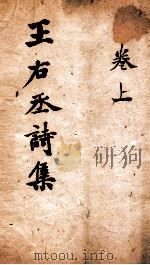 卷上
王右丞詩集
mtoou.info